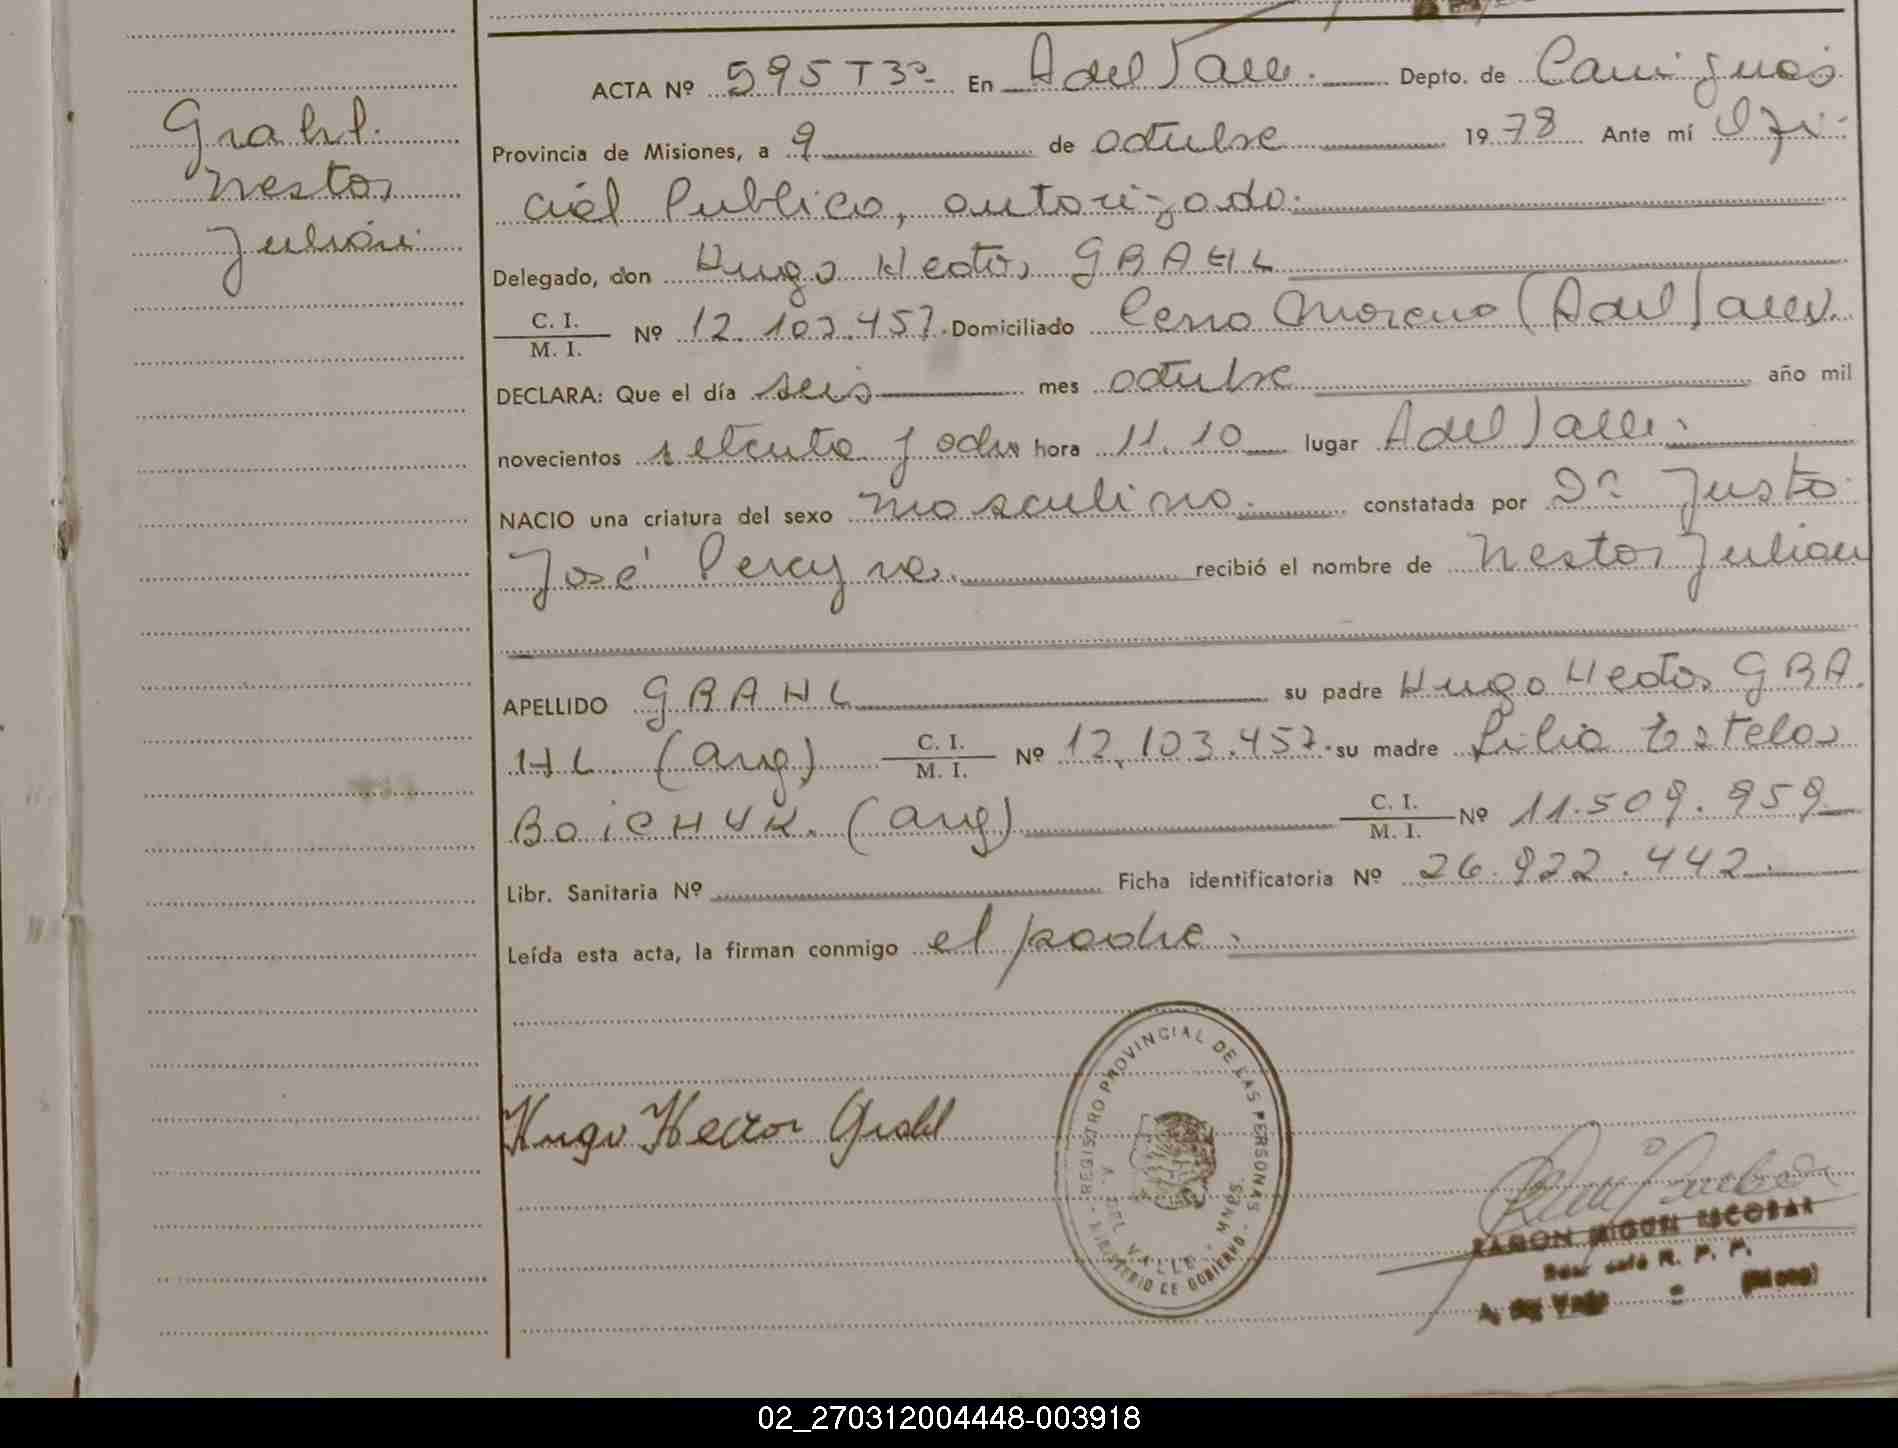 Grahl
Nestor
Julián
ACTA Nº 595 T3º En A del Valle. Depto. de Cainguás
Provincia de Misiones, a 9 de octubre 1978 Ante mí Ofi-
cial Publico, autorizado.
Delegado, don Hugo Hector GRAHL
C. I.
M. I. Nº 12.103.457. Domiciliado Cerro Moreno (A del Valle).
DECLARA: Que el día seis mes octubre año mil
novecientos setenta y ocho hora 11.10 lugar A del Valle.
NACIO una criatura del sexo masculino. constatada por Dr. Justo
José Pereyra. recibió el nombre de Nestor Julian
APELLIDO GRAHL su padre Hugo Hector GRA-
HL (arg) C. I. M. I. Nº 12.103.457. su madre Lilia Estela
BOICHUK. (arg) C. I. M. I. Nº 11.509.959
Libr. Sanitaria Nº Ficha identificatoria Nº 26.922.442.
Leída esta acta, la firman conmigo el padre.
Hugo Hector Grahl
REGISTRO PROVINCIAL DE LAS PERSONAS
A. DEL VALLE - MNES.
MINISTERIO DE GOBIERNO
RAMON MIGUEL ESCOBAR
R. P. P.
A. del Valle (Mnes)
02_270312004448-003918